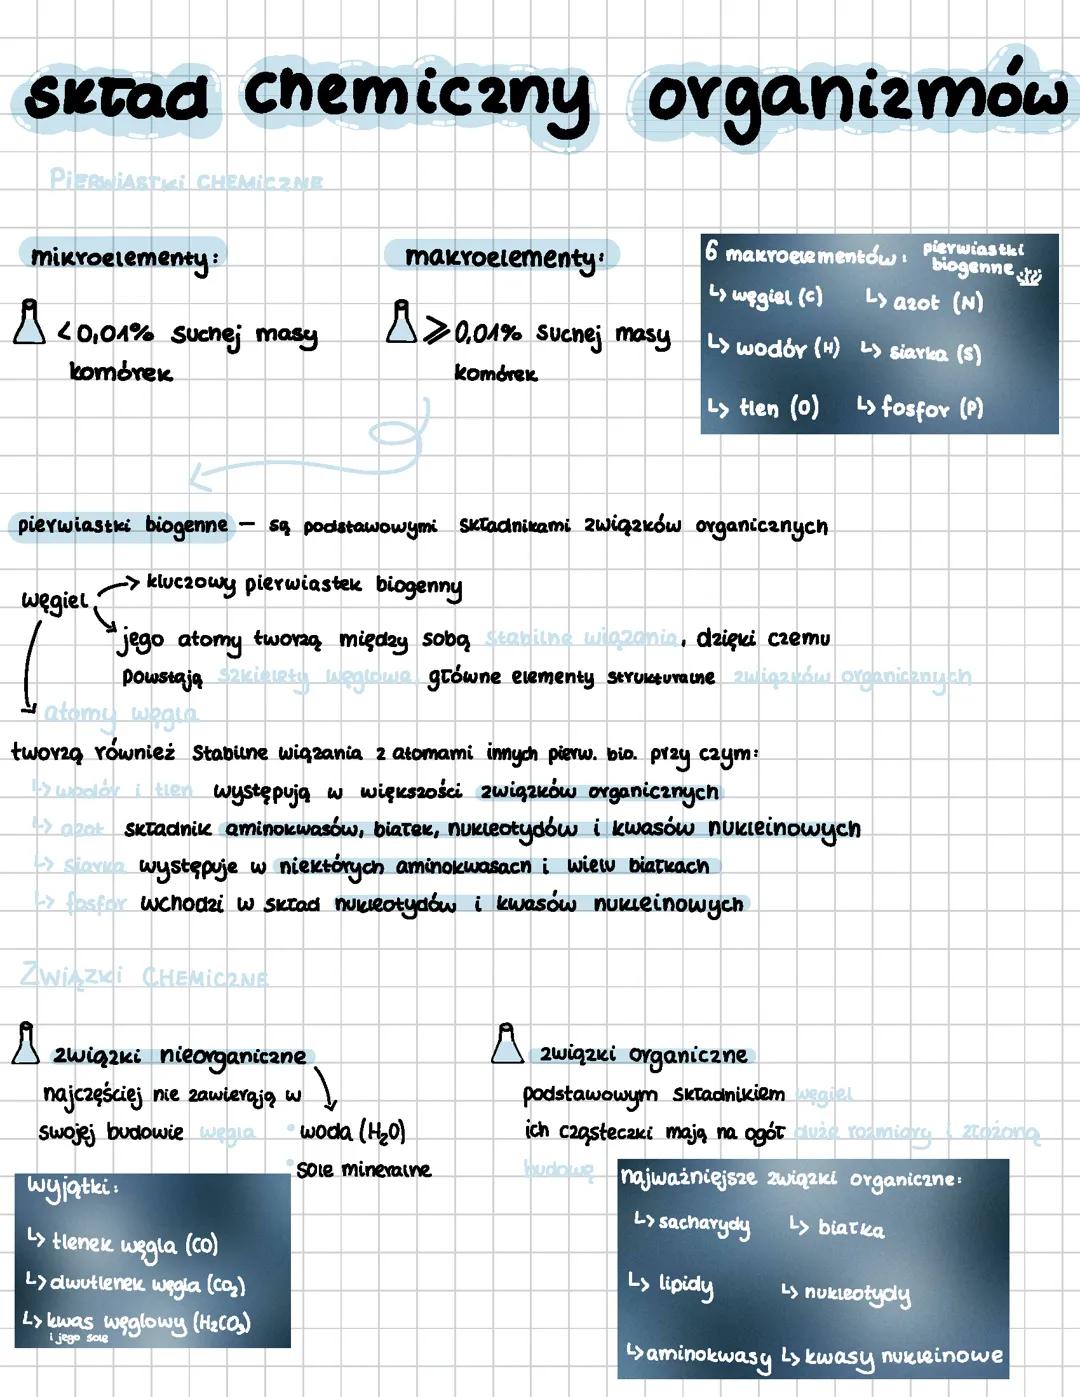 skład chemiczny organizmów
PIERWIASTKI CHEMICZNE
mikroelementy:
< 0,01% suchej masy
komórek
makroelementy:
⩾ 0,01% suchej masy
komórek
6 makroelementów: pierwiastki
biogenne
↳ węgiel (C) ↳ azot (N)
↳ wodór (H) ↳ siarka (S)
↳ tlen (O) ↳ fosfor (P)
pierwiastki biogenne – są podstawowymi składnikami związków organicznych
węgiel → kluczowy pierwiastek biogenny
jego atomy tworzą między sobą stabilne wiązania, dzięki czemu
powstają szkielety węglowe główne elementy strukturalne związków organicznych
atomy węgla
tworzą również stabilne wiązania z atomami innych pierw. bio. przy czym:
↳ wodór i tlen występują w większości związków organicznych
↳ azot składnik aminokwasów, białek, nukleotydów i kwasów nukleinowych
↳ siarka występuje w niektórych aminokwasach i wielu białkach
↳ fosfor wchodzi w skład nukleotydów i kwasów nukleinowych
ZWIĄZKI CHEMICZNE
związki nieorganiczne
najczęściej nie zawierają w
swojej budowie węgla
• woda (H₂O)
• sole mineralne
wyjątki:
↳ tlenek węgla (CO)
↳ dwutlenek węgla (CO₂)
↳ kwas węglowy (H₂CO₃)
i jego sole
związki organiczne
podstawowym składnikiem węgiel
ich cząsteczki mają na ogół duże rozmiary i złożoną
budowę
najważniejsze związki organiczne:
↳ sacharydy ↳ białka
↳ lipidy ↳ nukleotydy
↳ aminokwasy ↳ kwasy nukleinowe